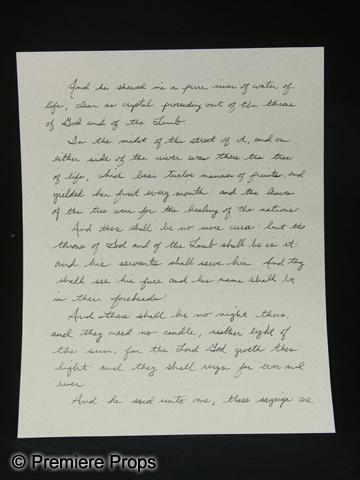 And he shewed me a pure river of water of
life, clear as crystal proceeding out of the throne
of God and of the Lamb.
In the midst of the street of it, and on
either side of the river was there the tree
of life, which bear twelve manner of fruits, and
yielded her fruit every month: and the leaves
of the tree were for the healing of the nations.
And there shall be no more curse: but the
throne of God and of the Lamb shall be in it:
and his servants shall serve him. And they
shall see his face and his name shall be
in their foreheads.
And there shall be no night there,
and they need no candle, neither light of
the sun, for the Lord God giveth them
light and they shall reign for ever and
ever.
And he said unto me, these sayings are
© Premiere Props